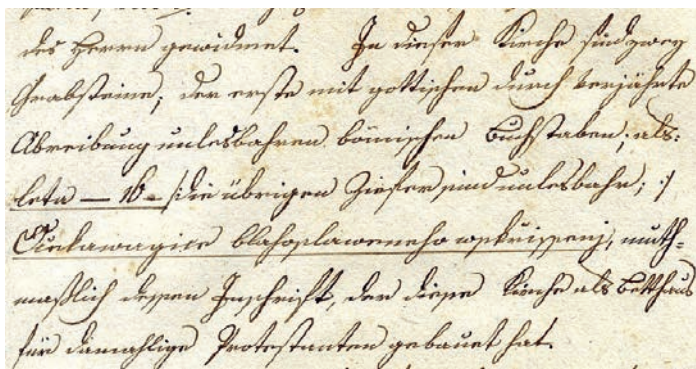 des Herrn gewidmet. In dieser Kirche sind zwey
Grabsteine, der erste mit gottischen durch verjährte
Abreibung unlesbahren bömischen Buchstaben; als:
leta — 16 – /: die übrigen Ziefer sind unlesbahr; :/
blahoslaweneho wskrissenj, muth-
maßlich dessen Inschrift, der diese Kirche als Betthaus
für damahlige Protestanten gebauet hat.